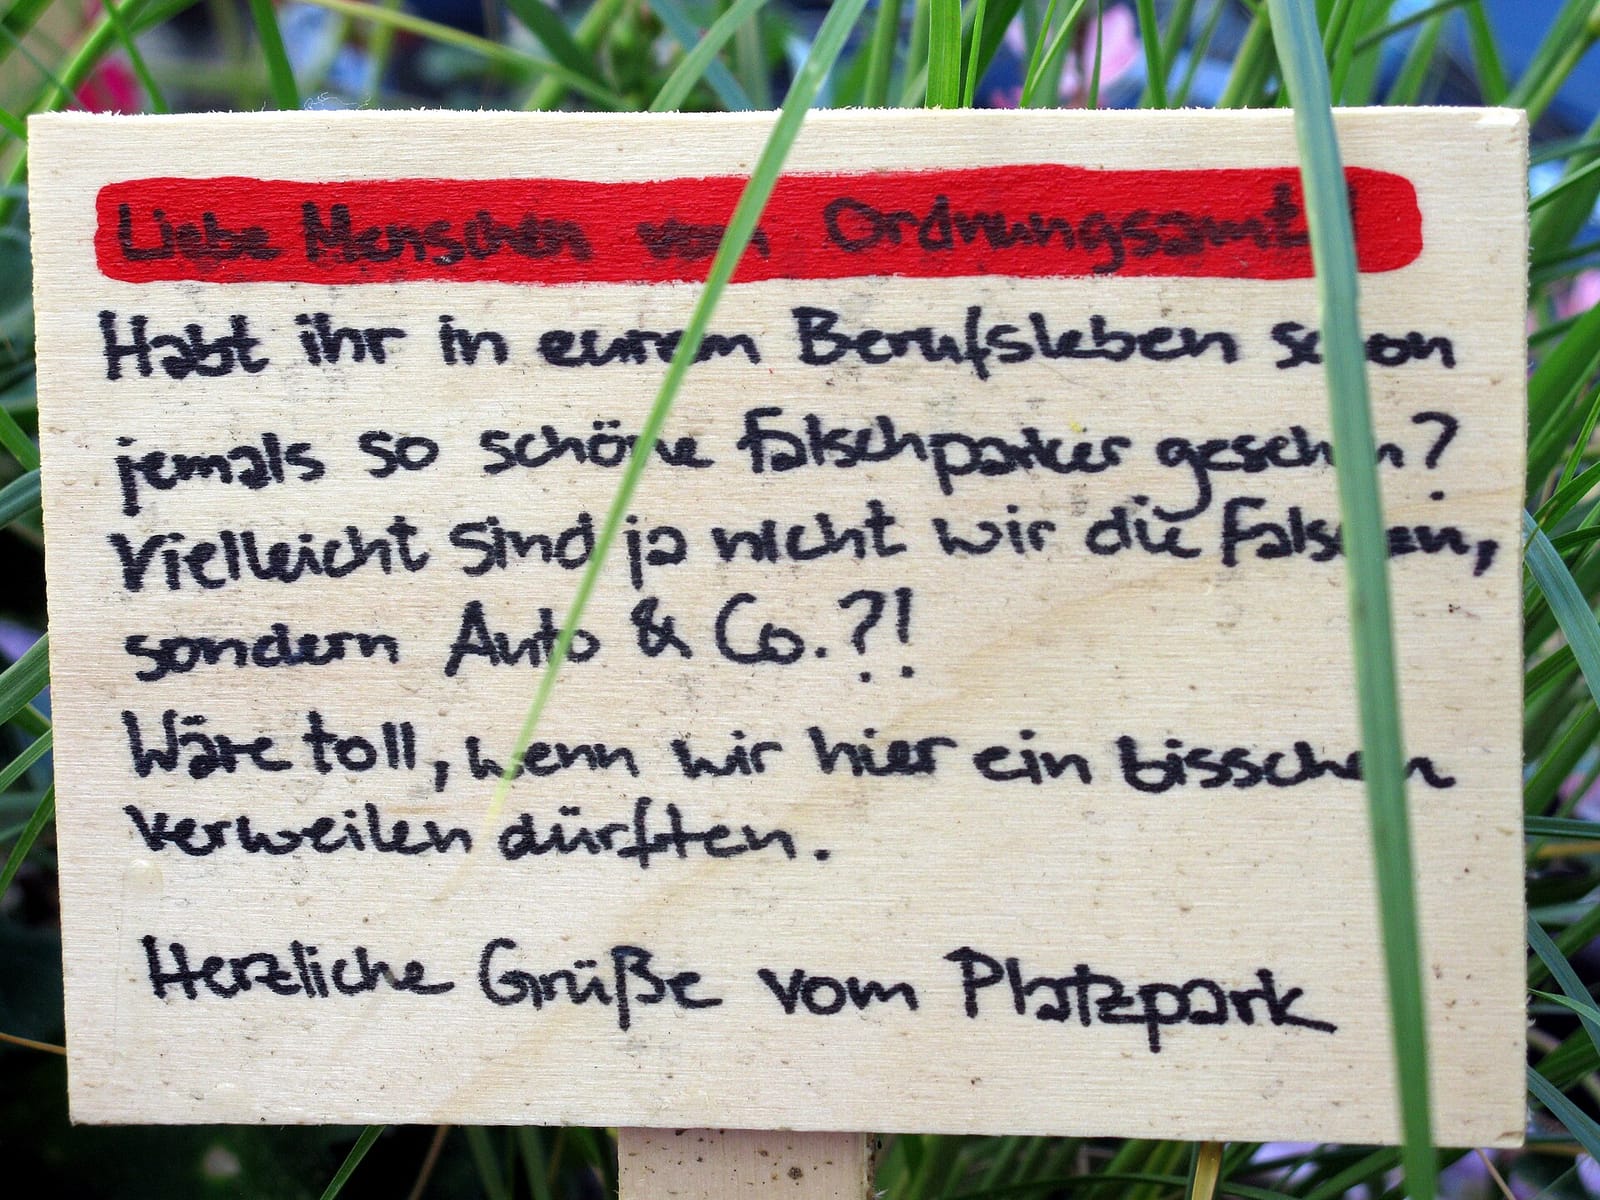 Liebe Menschen vom Ordnungsamt!
Habt ihr in eurem Berufsleben schon
jemals so schöne Falschparker gesehen?
Vielleicht sind ja nicht wir die Falschen,
sondern Auto & Co.?!
Wäre toll, wenn wir hier ein bisschen
verweilen dürften.
Herzliche Grüße vom Platzpark